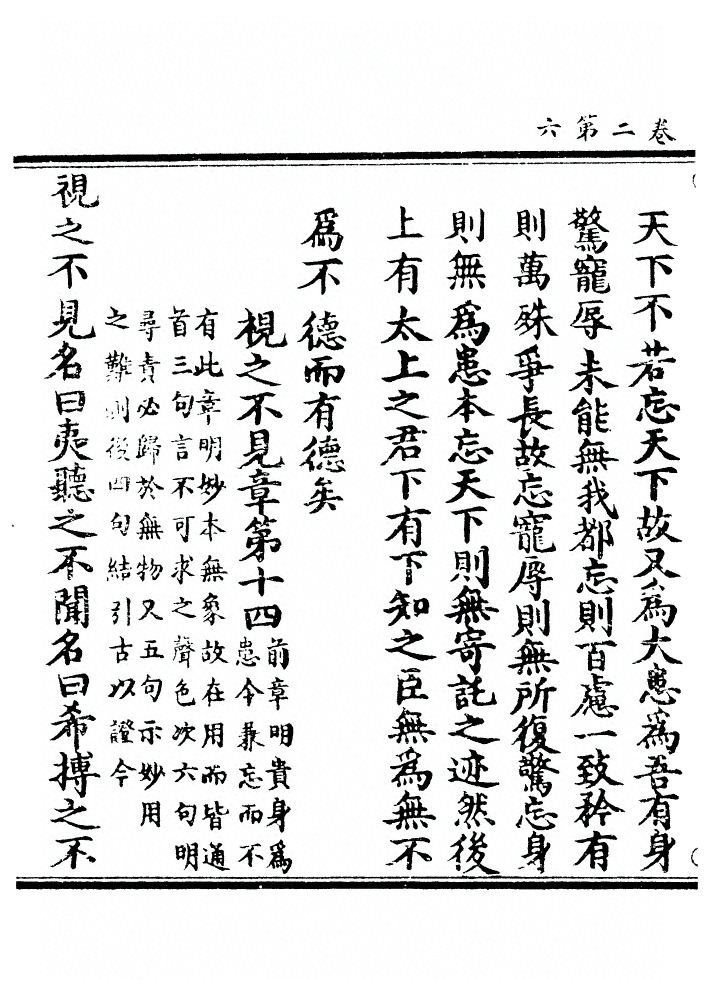 卷二第六
天下不若忘天下故又爲大患爲吾有身
驚寵辱未能無我都忘則百慮一致矜有
則萬殊爭長故忘寵辱則無所復驚忘身
則無爲患本忘天下則無寄託之迹然後
上有太上之君下有下知之臣無爲無不
爲不德而有德矣
視之不見章第十四
前章明貴身爲
患令兼忘而不
有此章明妙本無象故在用而皆通
首三句言不可求之聲色次六句明
尋責必歸於無物又五句示妙用
之難測後四句結引古以證今
視之不見名曰夷聽之不聞名曰希搏之不